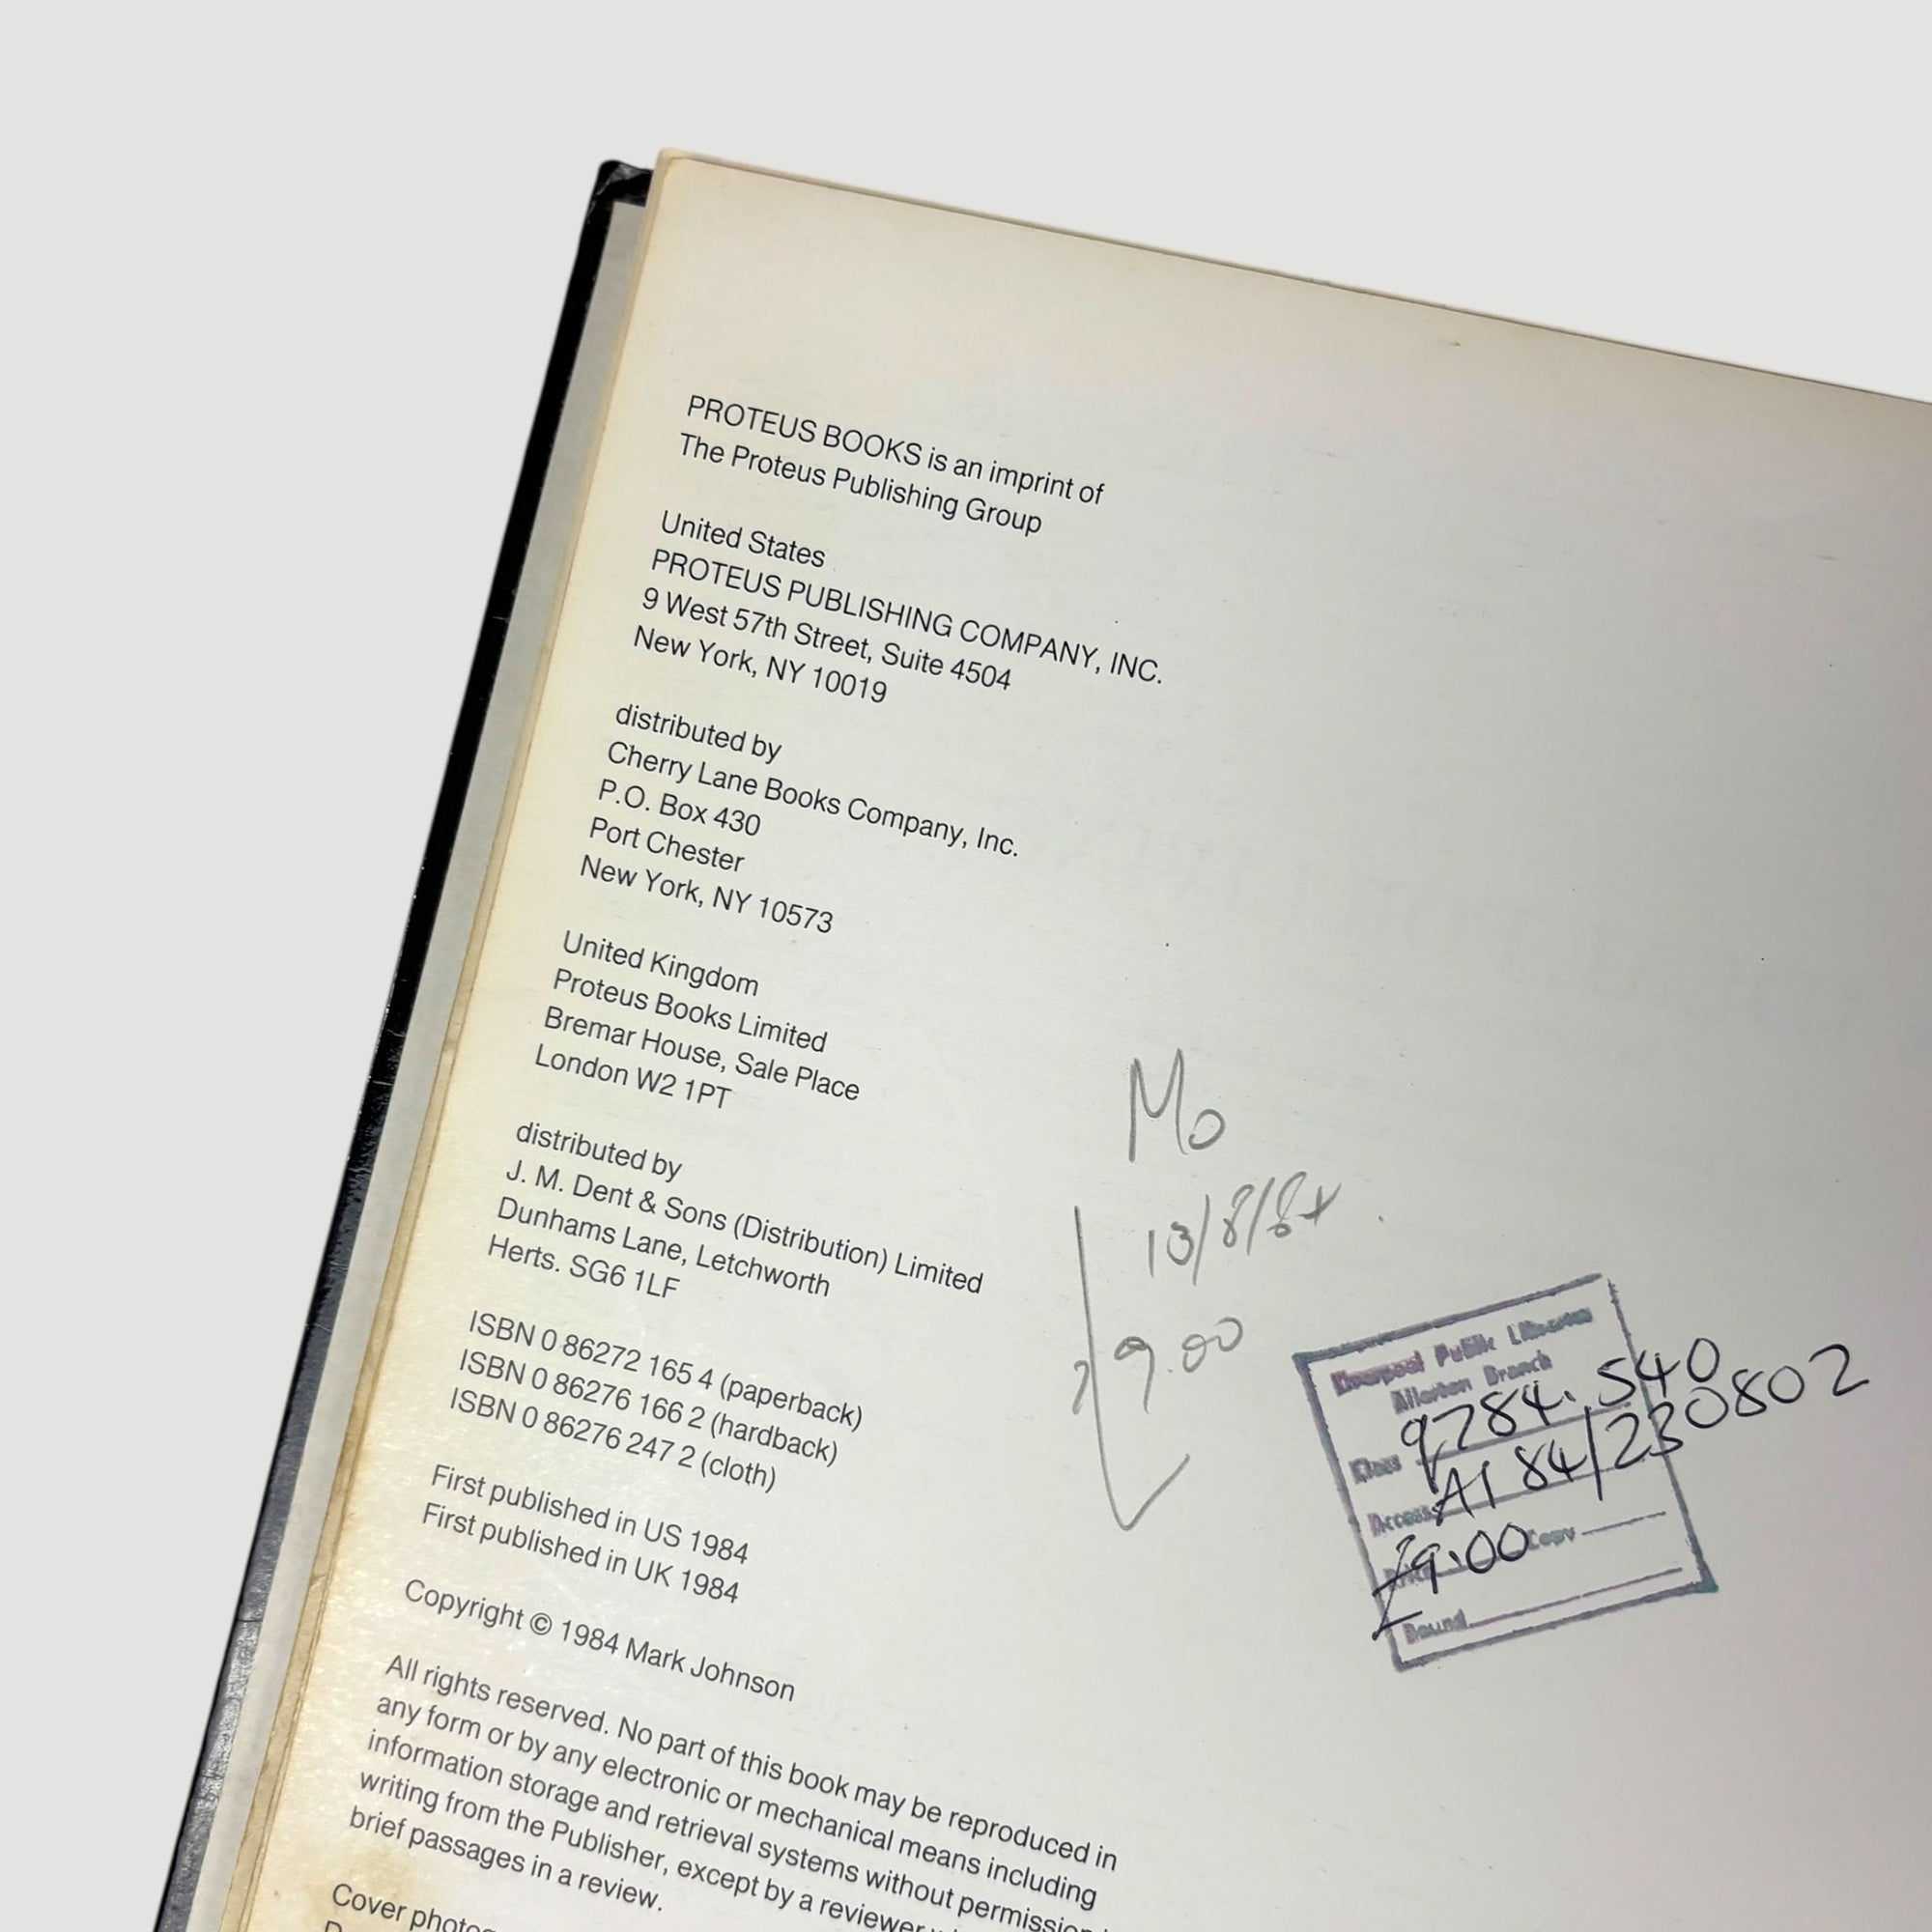 PROTEUS BOOKS is an imprint of
The Proteus Publishing Group
United States
PROTEUS PUBLISHING COMPANY, INC.
9 West 57th Street, Suite 4504
New York, NY 10019
distributed by
Cherry Lane Books Company, Inc.
P.O. Box 430
Port Chester
New York, NY 10573
United Kingdom
Proteus Books Limited
Bremar House, Sale Place
London W2 1PT
distributed by
J. M. Dent & Sons (Distribution) Limited
Dunhams Lane, Letchworth
Herts. SG6 1LF
ISBN 0 86272 165 4 (paperback)
ISBN 0 86276 166 2 (hardback)
ISBN 0 86276 247 2 (cloth)
First published in US 1984
First published in UK 1984
Copyright © 1984 Mark Johnson
All rights reserved. No part of this book may be reproduced in
any form or by any electronic or mechanical means including
information storage and retrieval systems without permission
writing from the Publisher, except by a reviewer
brief passages in a review.
Cover
Mo
13/8/84
9.00
Liverpool Public Libraries
Allerton Branch
Class 9784.540
Access A1 84/230802
Price £9.00 Copy
Bound